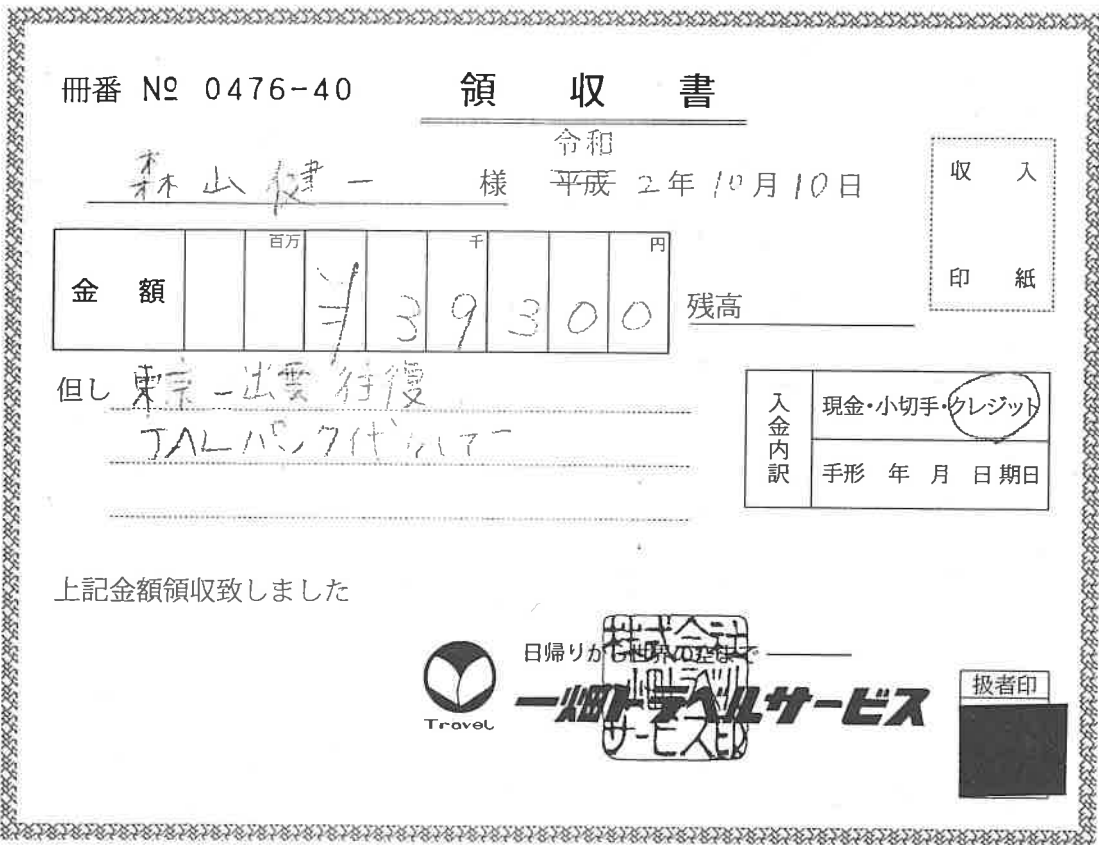 冊番 № 0476-40 領収書
森山健一 様 令和 平成 2年10月10日
収入
印紙
金額 百万 千 円
¥39300
残高
但し 東京-出雲 往復
JALパック代
入金内訳
現金・小切手・クレジット
手形 年 月 日期日
上記金額領収致しました
日帰りから世界の空まで
一畑トラベルサービス
Travel
株式会社
一畑トラベル
サービス印
扱者印